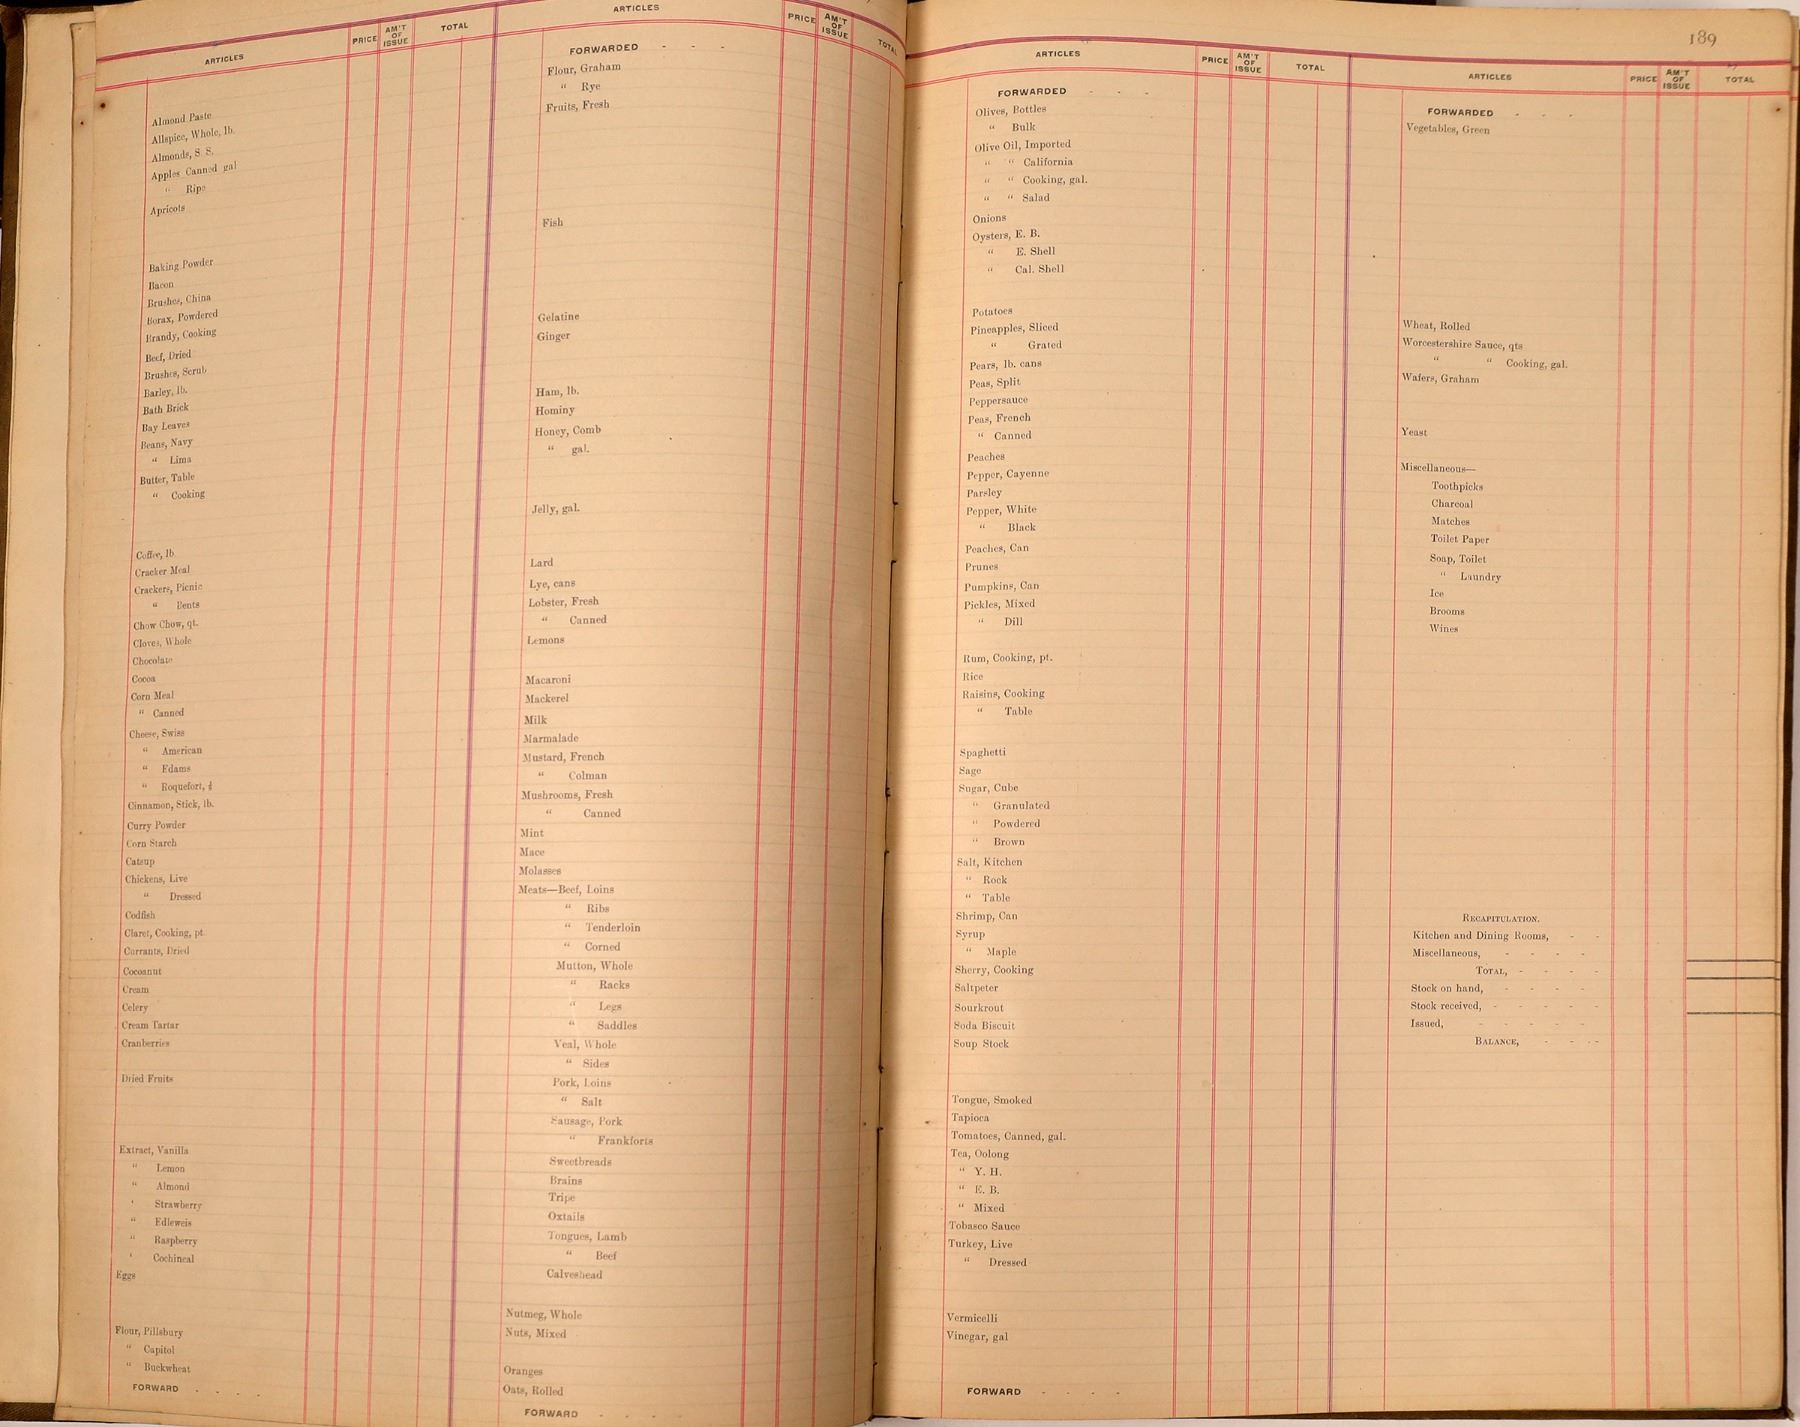 ARTICLES PRICE AM'T OF ISSUE TOTAL
Almond Paste
Allspice, Whole, lb.
Almonds, S. S.
Apples Canned gal
" Ripe
Apricots
Baking Powder
Bacon
Brushes, China
Borax, Powdered
Brandy, Cooking
Beef, Dried
Brushes, Scrub
Barley, lb.
Bath Brick
Bay Leaves
Beans, Navy
" Lima
Butter, Table
" Cooking
Coffee, lb
Cracker Meal
Crackers, Picnic
" Bents
Chow Chow, qt.
Cloves, Whole
Chocolate
Cocoa
Corn Meal
" Canned
Cheese, Swiss
" American
" Edams
" Roquefort, ½
Cinnamon, Stick, lb.
Curry Powder
Corn Starch
Catsup
Chickens, Live
" Dressed
Codfish
Claret, Cooking, pt.
Currants, Dried
Cocoanut
Cream
Celery
Cream Tartar
Cranberries
Dried Fruits
Extract, Vanilla
" Lemon
" Almond
" Strawberry
" Edleweis
" Raspberry
" Cochineal
Eggs
Flour, Pillsbury
" Capitol
" Buckwheat
FORWARD - - - -
ARTICLES PRICE AM'T OF ISSUE TOTAL
FORWARDED - - -
Flour, Graham
" Rye
Fruits, Fresh
Fish
Gelatine
Ginger
Ham, lb.
Hominy
Honey, Comb
" gal.
Jelly, gal.
Lard
Lye, cans
Lobster, Fresh
" Canned
Lemons
Macaroni
Mackerel
Milk
Marmalade
Mustard, French
" Colman
Mushrooms, Fresh
" Canned
Mint
Mace
Molasses
Meats—Beef, Loins
" Ribs
" Tenderloin
" Corned
Mutton, Whole
" Racks
" Legs
" Saddles
Veal, Whole
" Sides
Pork, Loins
" Salt
Sausage, Pork
" Frankforts
Sweetbreads
Brains
Tripe
Oxtails
Tongues, Lamb
" Beef
Calveshead
Nutmeg, Whole
Nuts, Mixed
Oranges
Oats, Rolled
FORWARD - - - -
ARTICLES PRICE AM'T OF ISSUE TOTAL
FORWARDED - - -
Olives, Bottles
" Bulk
Olive Oil, Imported
" " California
" " Cooking, gal.
" " Salad
Onions
Oysters, E. B.
" E. Shell
" Cal. Shell
Potatoes
Pineapples, Sliced
" Grated
Pears, lb. cans
Peas, Split
Peppersauce
Peas, French
" Canned
Peaches
Pepper, Cayenne
Parsley
Pepper, White
" Black
Peaches, Can
Prunes
Pumpkins, Can
Pickles, Mixed
" Dill
Rum, Cooking, pt.
Rice
Raisins, Cooking
" Table
Spaghetti
Sage
Sugar, Cube
" Granulated
" Powdered
" Brown
Salt, Kitchen
" Rock
" Table
Shrimp, Can
Syrup
" Maple
Sherry, Cooking
Saltpeter
Sourkrout
Soda Biscuit
Soup Stock
Tongue, Smoked
Tapioca
Tomatoes, Canned, gal.
Tea, Oolong
" Y. H.
" E. B.
" Mixed
Tobasco Sauce
Turkey, Live
" Dressed
Vermicelli
Vinegar, gal
FORWARD - - - -
189
ARTICLES PRICE AM'T OF ISSUE TOTAL
FORWARDED - - -
Vegetables, Green
Wheat, Rolled
Worcestershire Sauce, qts
" " Cooking, gal.
Wafers, Graham
Yeast
Miscellaneous—
Toothpicks
Charcoal
Matches
Toilet Paper
Soap, Toilet
" Laundry
Ice
Brooms
Wines
RECAPITULATION.
Kitchen and Dining Rooms, - -
Miscellaneous, - - - -
TOTAL, - - - -
Stock on hand, - - - -
Stock received, - - - - -
Issued, - - - - -
BALANCE, - - - -